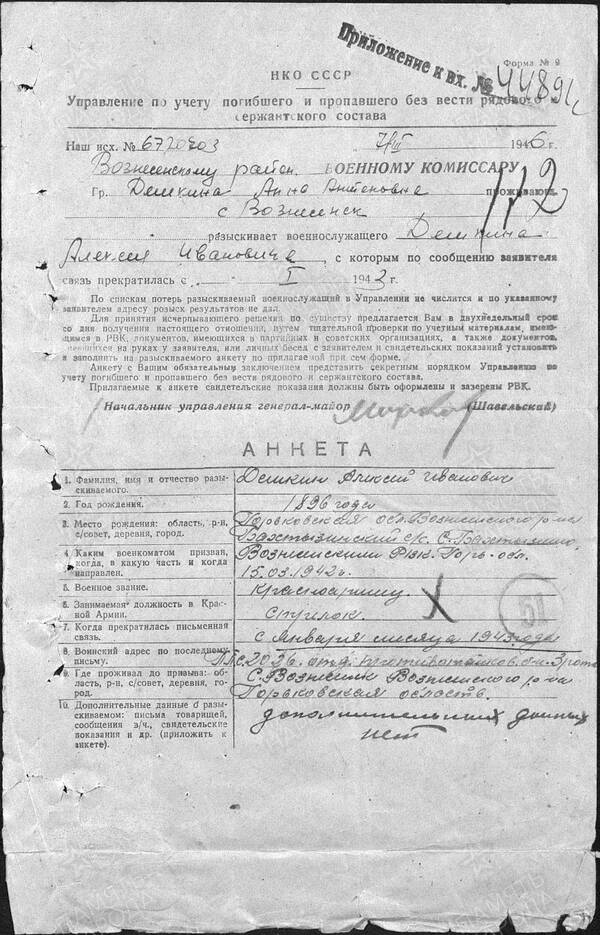 Приложение к вх. № 44891с
Форма № 9
НКО СССР
Управление по учету погибшего и пропавшего без вести рядового и
сержантского состава
Наш исх. № 6720203 7/III 1946 г.
Вознесенскому район. ВОЕННОМУ КОМИССАРУ
112
Гр. Демкина Анна проживающ.
с Вознесенск
разыскивает военнослужащего Демкина
Алексея Ивановича, с которым по сообщению заявителя
связь прекратилась с I 1943 г.
По спискам потерь разыскиваемый военнослужащий в Управлении не числится и по указанному
заявителем адресу розыск результатов не дал.
Для принятия исчерпывающего решения по существу предлагается Вам в двухнедельный срок
со дня получения настоящего отношения, путем тщательной проверки по учетным материалам, имею-
щимся в РВК, документов, имеющихся в партийных и советских организациях, а также документов,
имеющихся на руках у заявителя, или личных бесед с заявителем и свидетельских показаний установить
и заполнить на разыскиваемого анкету по прилагаемой при сем форме.
Анкету с Вашим обязательным заключением представить секретным порядком Управлению по
учету погибшего и пропавшего без вести рядового и сержантского состава.
Прилагаемые к анкете свидетельские показания должны быть оформлены и заверены РВК.
Начальник управления генерал-майор (Шавельский)
АНКЕТА
1. Фамилия, имя и отчество разы-
скиваемого.
Демкин Алексей Иванович
2. Год рождения.
1896 года
3. Место рождения: область, р-н,
с/совет, деревня, город.
Горьковская обл. Вознесенского р-на
Бахтызинский с/с. С. Бахтызино
4. Каким военкоматом призван,
когда, в какую часть и когда
направлен.
Вознесенским Рвк. Горьк. обл.
15.03.1942 г.
5. Военное звание.
Красноармеец
6. Занимаемая должность в Крас-
ной Армии.
Стрелок.
51
7. Когда прекратилась письменная
связь.
с Января месяца 1943 года
8. Воинский адрес по последнему
письму.
ППС 2026. отд. противотанков. б-н. 3 рота
9. Где проживал до призыва: об-
ласть, р-н, с/совет, деревня, го-
род.
С. Вознесенск Вознесенского р-на
Горьковская область.
10. Дополнительные данные о разы-
скиваемом: письма товарищей,
сообщения в/ч., свидетельские
показания и др. (приложить к
анкете).
дополнительных данных
нет